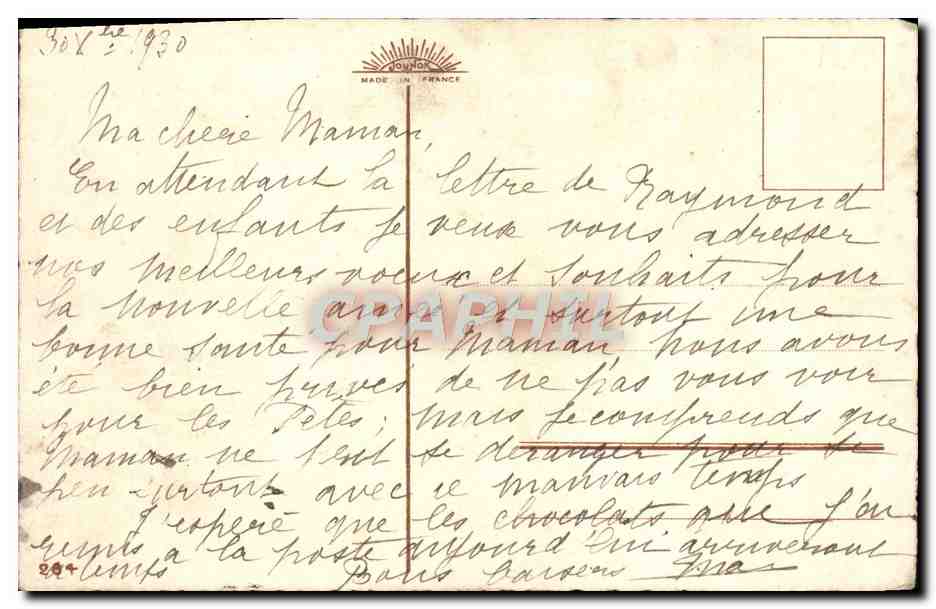 30 Xbre 1930
JOUNOK
MADE IN FRANCE
Ma chere Maman,
En attendant la lettre de Raymond
et des enfants je veux vous adresser
nos meilleurs voeux et souhaits pour
la nouvelle année et surtout une
bonne santé pour Maman, nous avons
été bien privés de ne pas vous voir
pour les Fêtes, mais je comprends que
Maman ne peut se deranger pour si
peu surtout avec ce mauvais temps
J'espère que les chocolats que j'ai
remis a la poste aujourd'hui arriveront
a temps Bons baisers
CPAPHIL
284